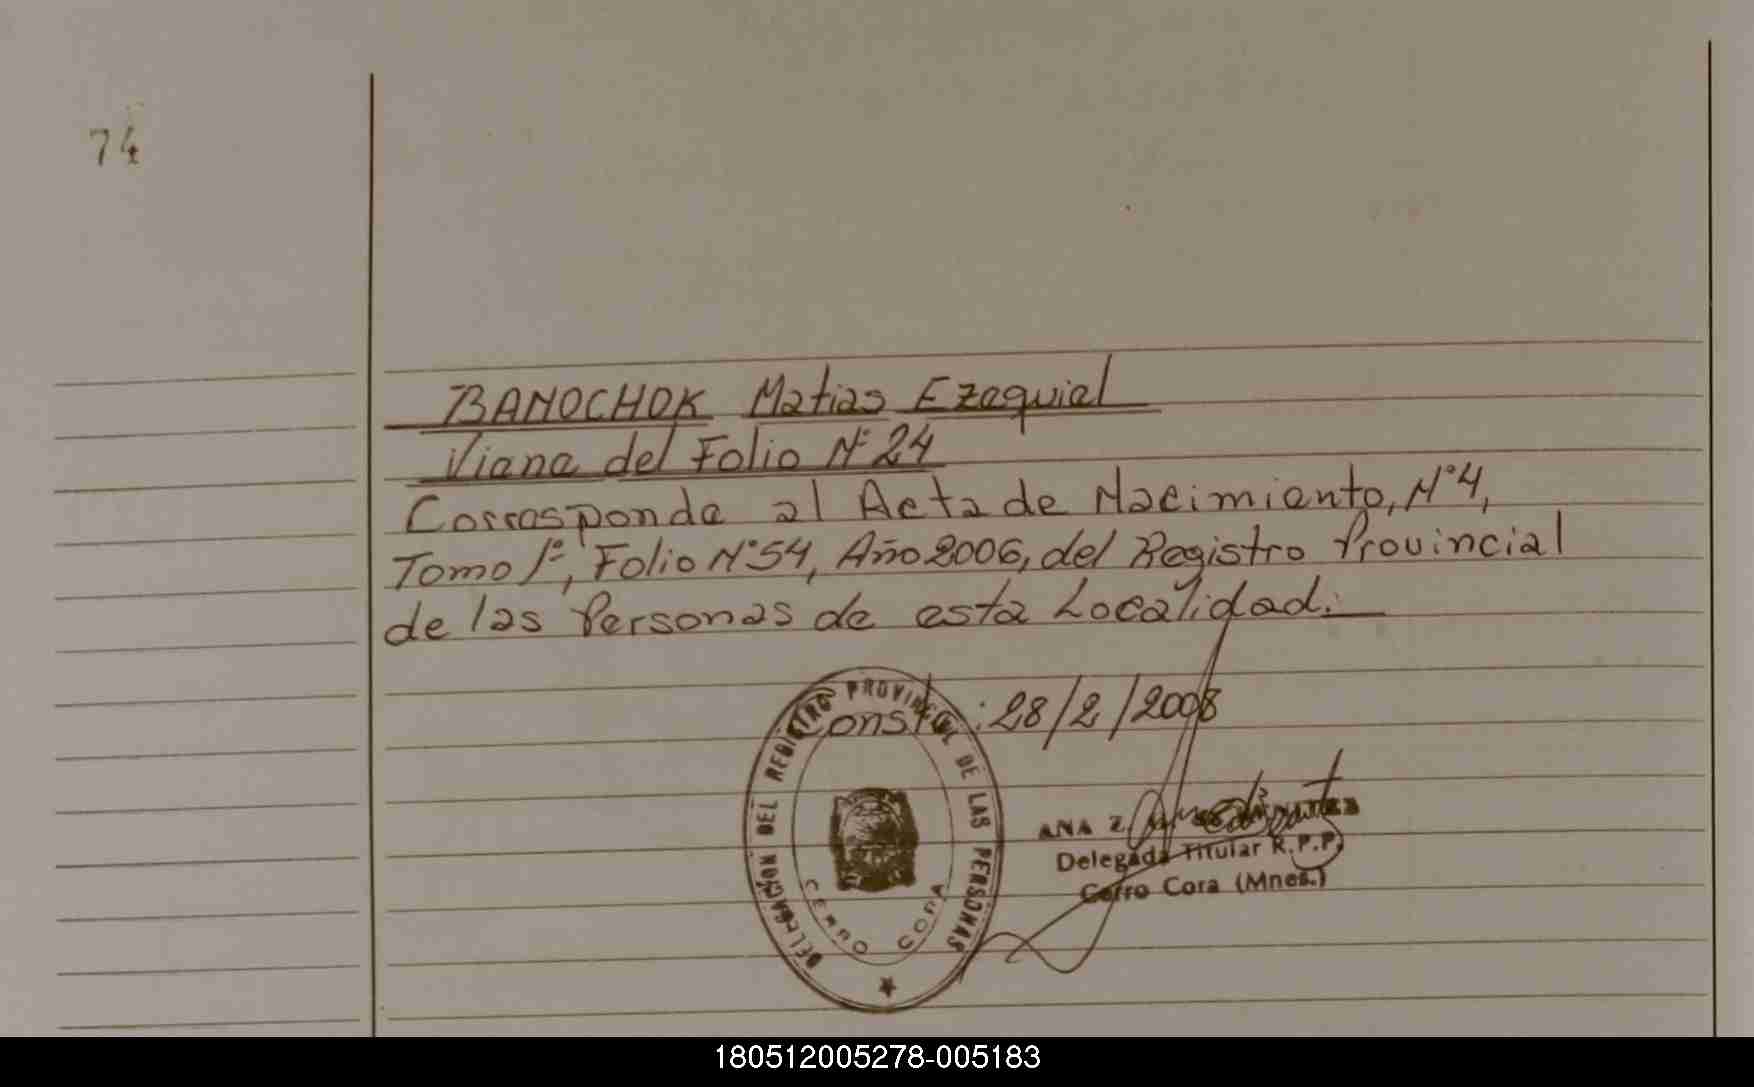 74
BANOCHOK Matias Ezequiel
Viene del Folio Nº 24
Corresponde al Acta de Nacimiento, Nº 4,
Tomo 1º, Folio Nº 54, Año 2006, del Registro Provincial
de las Personas de esta Localidad.
Const : 28/2/2008
DELEGACIÓN DEL REGISTRO PROVINCIAL DE LAS PERSONAS
CERRO CORA
ANA Z.
Delegada Titular R.P.P.
Cerro Cora (Mnes.)
180512005278-005183